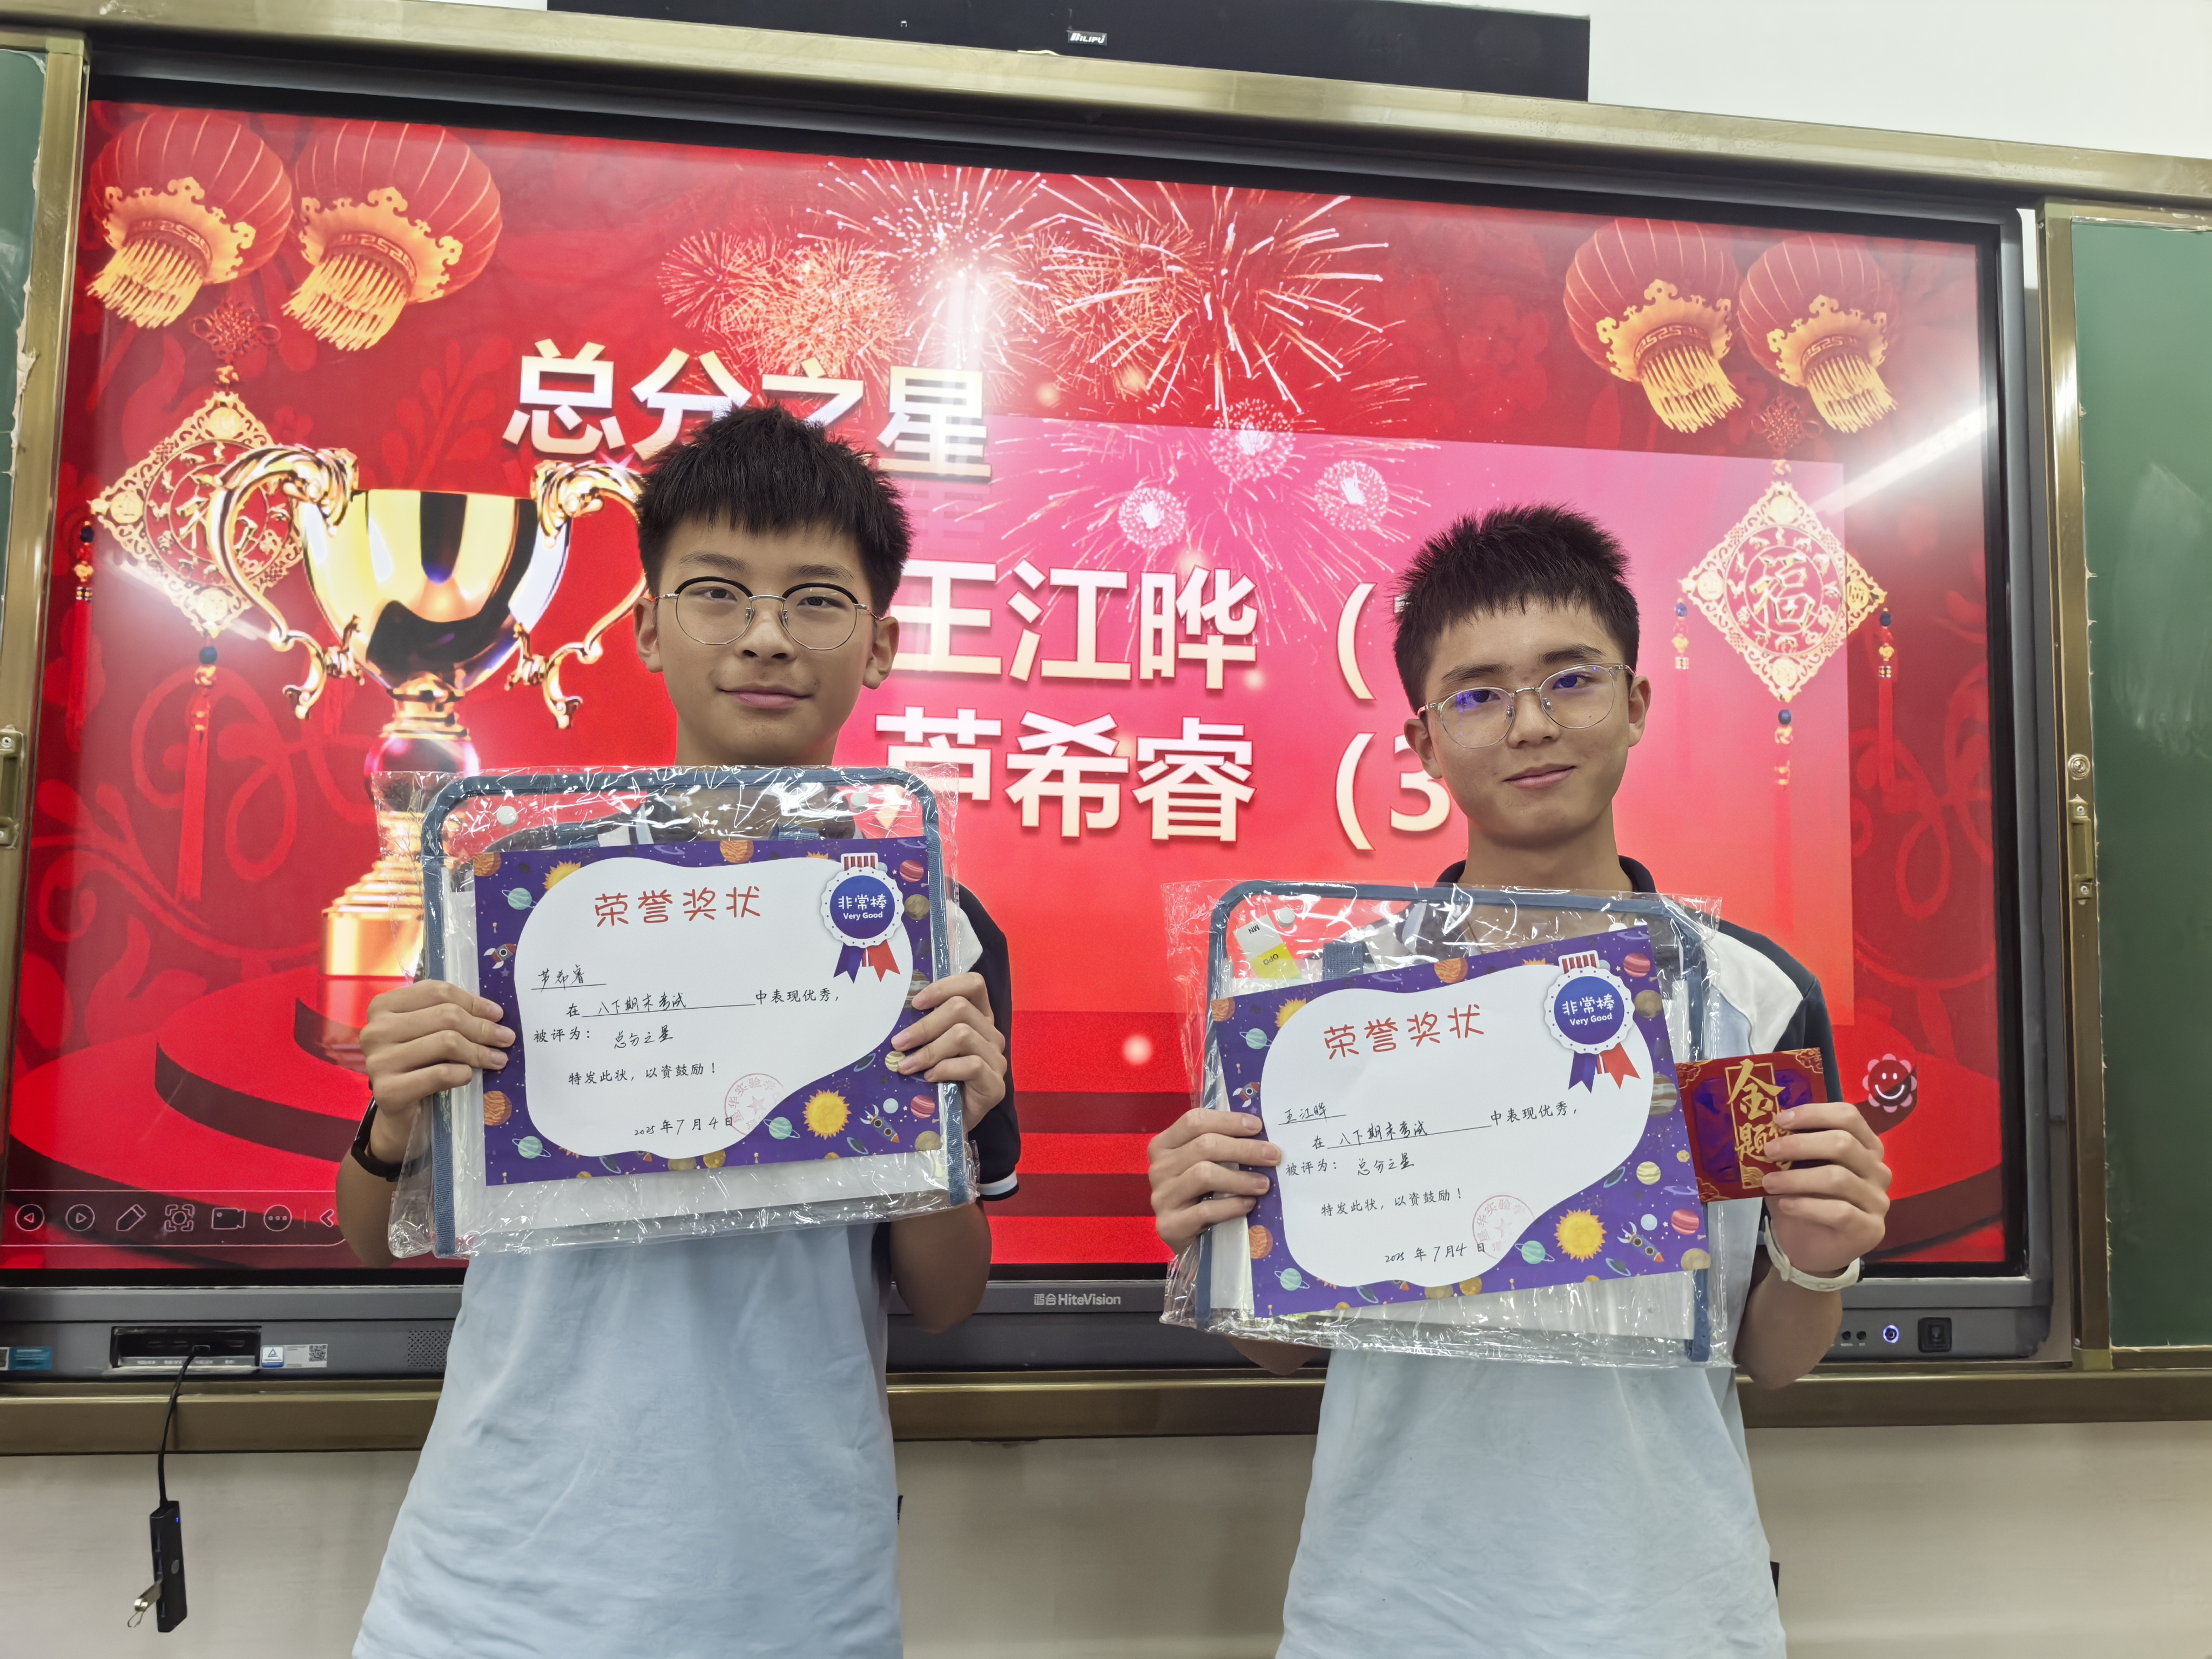 BILIPU
总分之星
王江晔（
芦希睿（3
福
荣誉奖状
非常棒
Very Good
芦希睿
在 八下期末考试 中表现优秀，
被评为： 总分之星
特发此状，以资鼓励！
2025 年 7 月 4 日
荣誉奖状
非常棒
Very Good
王江晔
在 八下期末考试 中表现优秀，
被评为： 总分之星
特发此状，以资鼓励！
2025 年 7 月 4 日
金
HiteVision